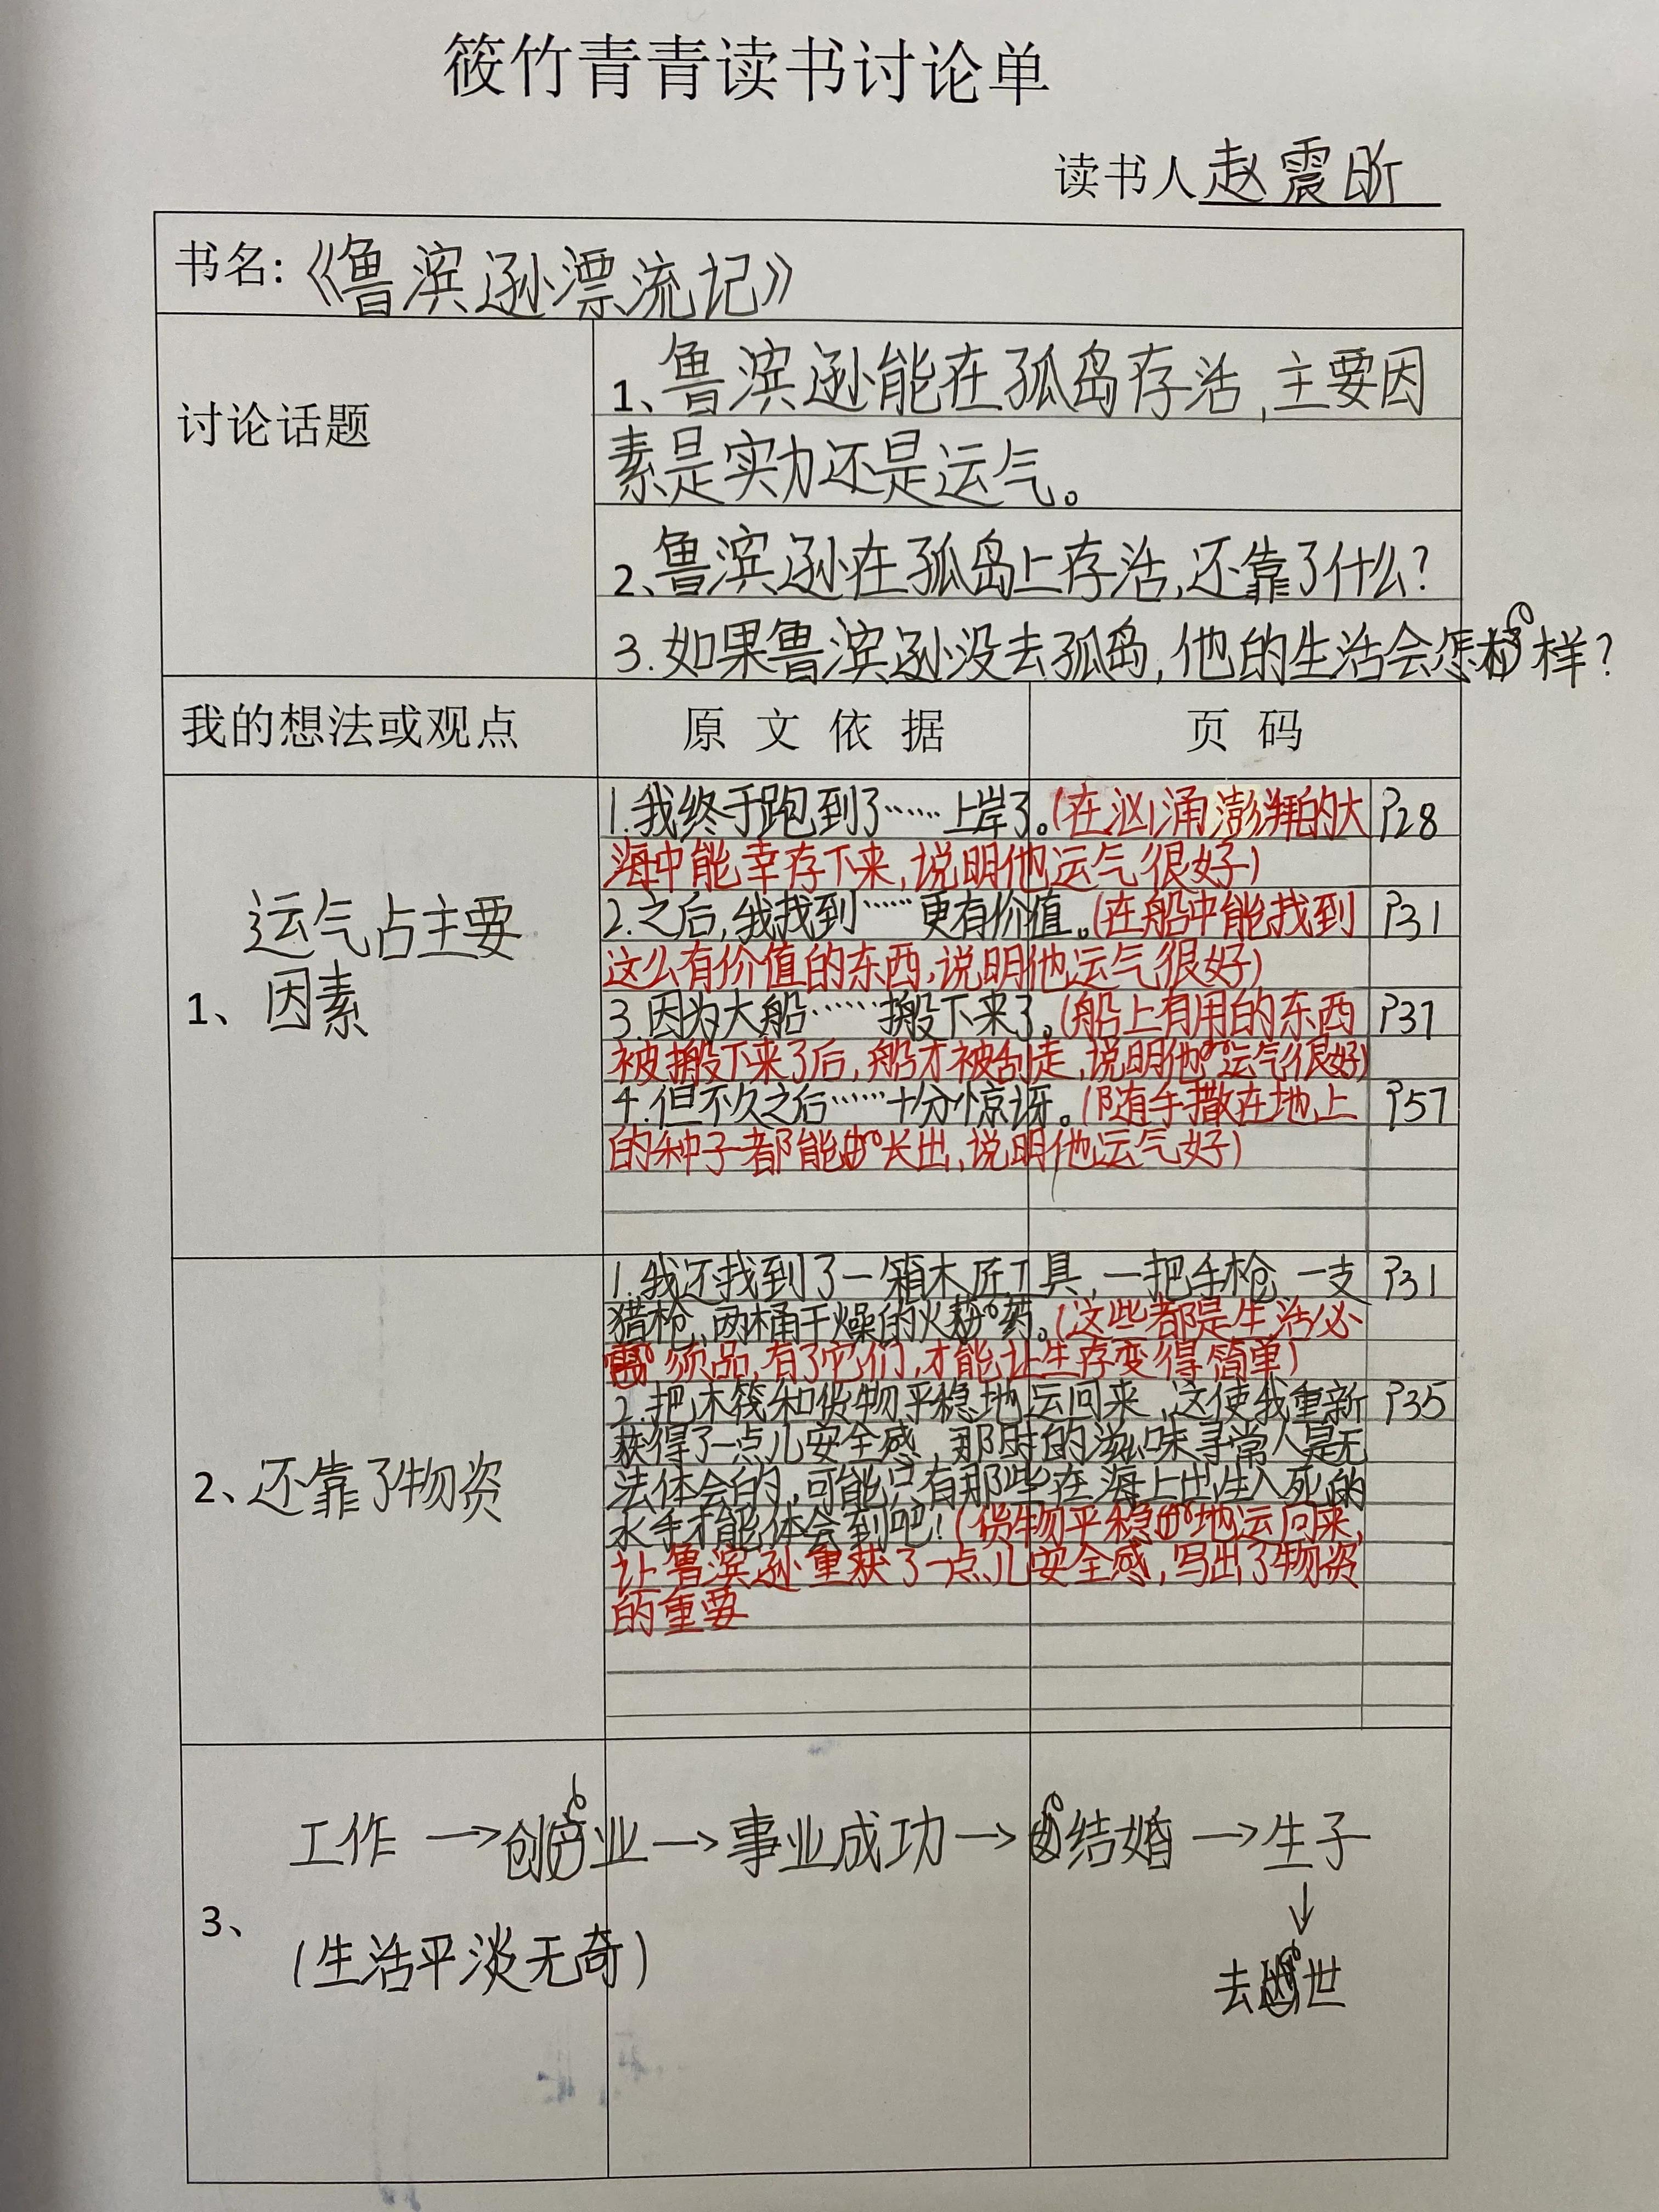 筱竹青青读书讨论单
读书人赵震昕
书名:《鲁滨逊漂流记》
讨论话题
1、鲁滨逊能在孤岛存活,主要因
素是实力还是运气。
2、鲁滨逊在孤岛上存活,还靠了什么?
3.如果鲁滨逊没去孤岛,他的生活会怎样?
我的想法或观点 原文依据 页码
运气占主要
1、因素
1.我终于跑到了……上岸了。(在汹涌澎湃的大 P28
海中能幸存下来,说明他运气很好)
2.之后,我找到……更有价值。(在船中能找到 P31
这么有价值的东西,说明他运气很好)
3.因为大船……搬下来了。(船上有用的东西 P37
被搬下来了后,船才被刮走,说明他运气很好)
4.但不久之后……十分惊讶。(随手撒在地上 P57
的种子都能长出,说明他运气好)
2、还靠了物资
1.我还找到了一箱木匠工具,一把手枪,一支 P31
猎枪、两桶干燥的火药。(这些都是生活必
须品,有了它们,才能让生存变得简单)
2.把木筏和货物平稳地运回来,这使我重新 P35
获得了一点儿安全感,那时的滋味寻常人是无
法体会的,可能只有那些在海上出生入死的
水手才能体会到吧!(货物平稳地运回来,
让鲁滨逊重获了一点儿安全感,写出了物资
的重要
工作→创业→事业成功→结婚→生子
↓
3、
(生活平淡无奇)
去世